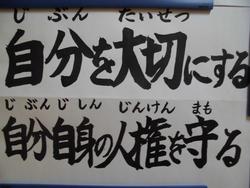 じぶん たいせつ
自分を大切にする
じぶんじしん じんけん まも
自分自身の人権を守る